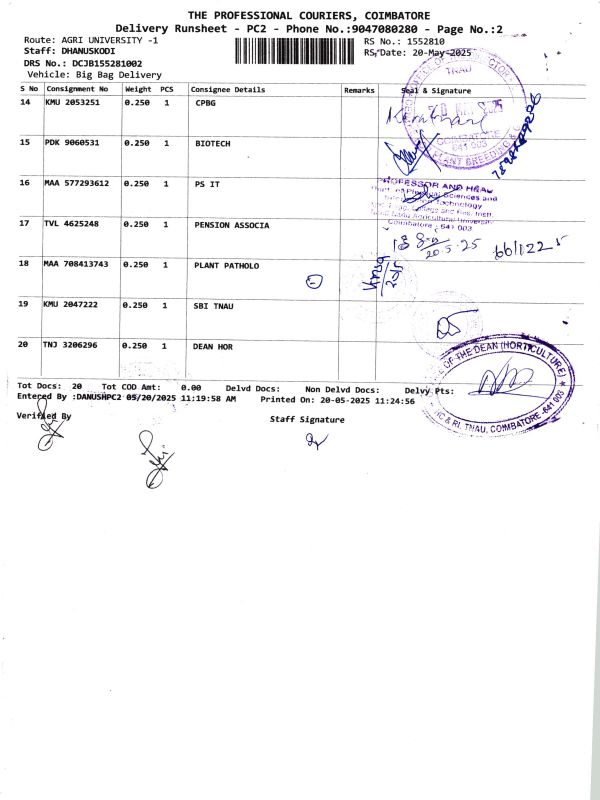 THE PROFESSIONAL COURIERS, COIMBATORE
Delivery Runsheet - PC2 - Phone No.:9047080280 - Page No.:2
Route: AGRI UNIVERSITY -1 RS No.: 1552810
Staff: DHANUSKODI RS Date: 20-May-2025
DRS No.: DCJB155281002
Vehicle: Big Bag Delivery
S No Consignment No Weight PCS Consignee Details Remarks Seal & Signature
14 KMU 2053251 0.250 1 CPBG
15 PDK 9060531 0.250 1 BIOTECH
16 MAA 577293612 0.250 1 PS IT
17 TVL 4625248 0.250 1 PENSION ASSOCIA
18 MAA 708413743 0.250 1 PLANT PATHOLO
19 KMU 2047222 0.250 1 SBI TNAU
20 TNJ 3206296 0.250 1 DEAN HOR
TNAU
COIMBATORE
641 003
PLANT BREEDING &
PROFESSOR AND HEAD
Sciences and
Technology
Coimbatore - 641 003
20.5.25
20/5
OF THE DEAN (HORTICULTURE)
HC & RI, TNAU, COIMBATORE-641 003
Tot Docs: 20 Tot COD Amt: 0.00 Delvd Docs: Non Delvd Docs: Delvy Pts:
Entered By :DANUSHPC2 05/20/2025 11:19:58 AM Printed On: 20-05-2025 11:24:56
Verified By Staff Signature